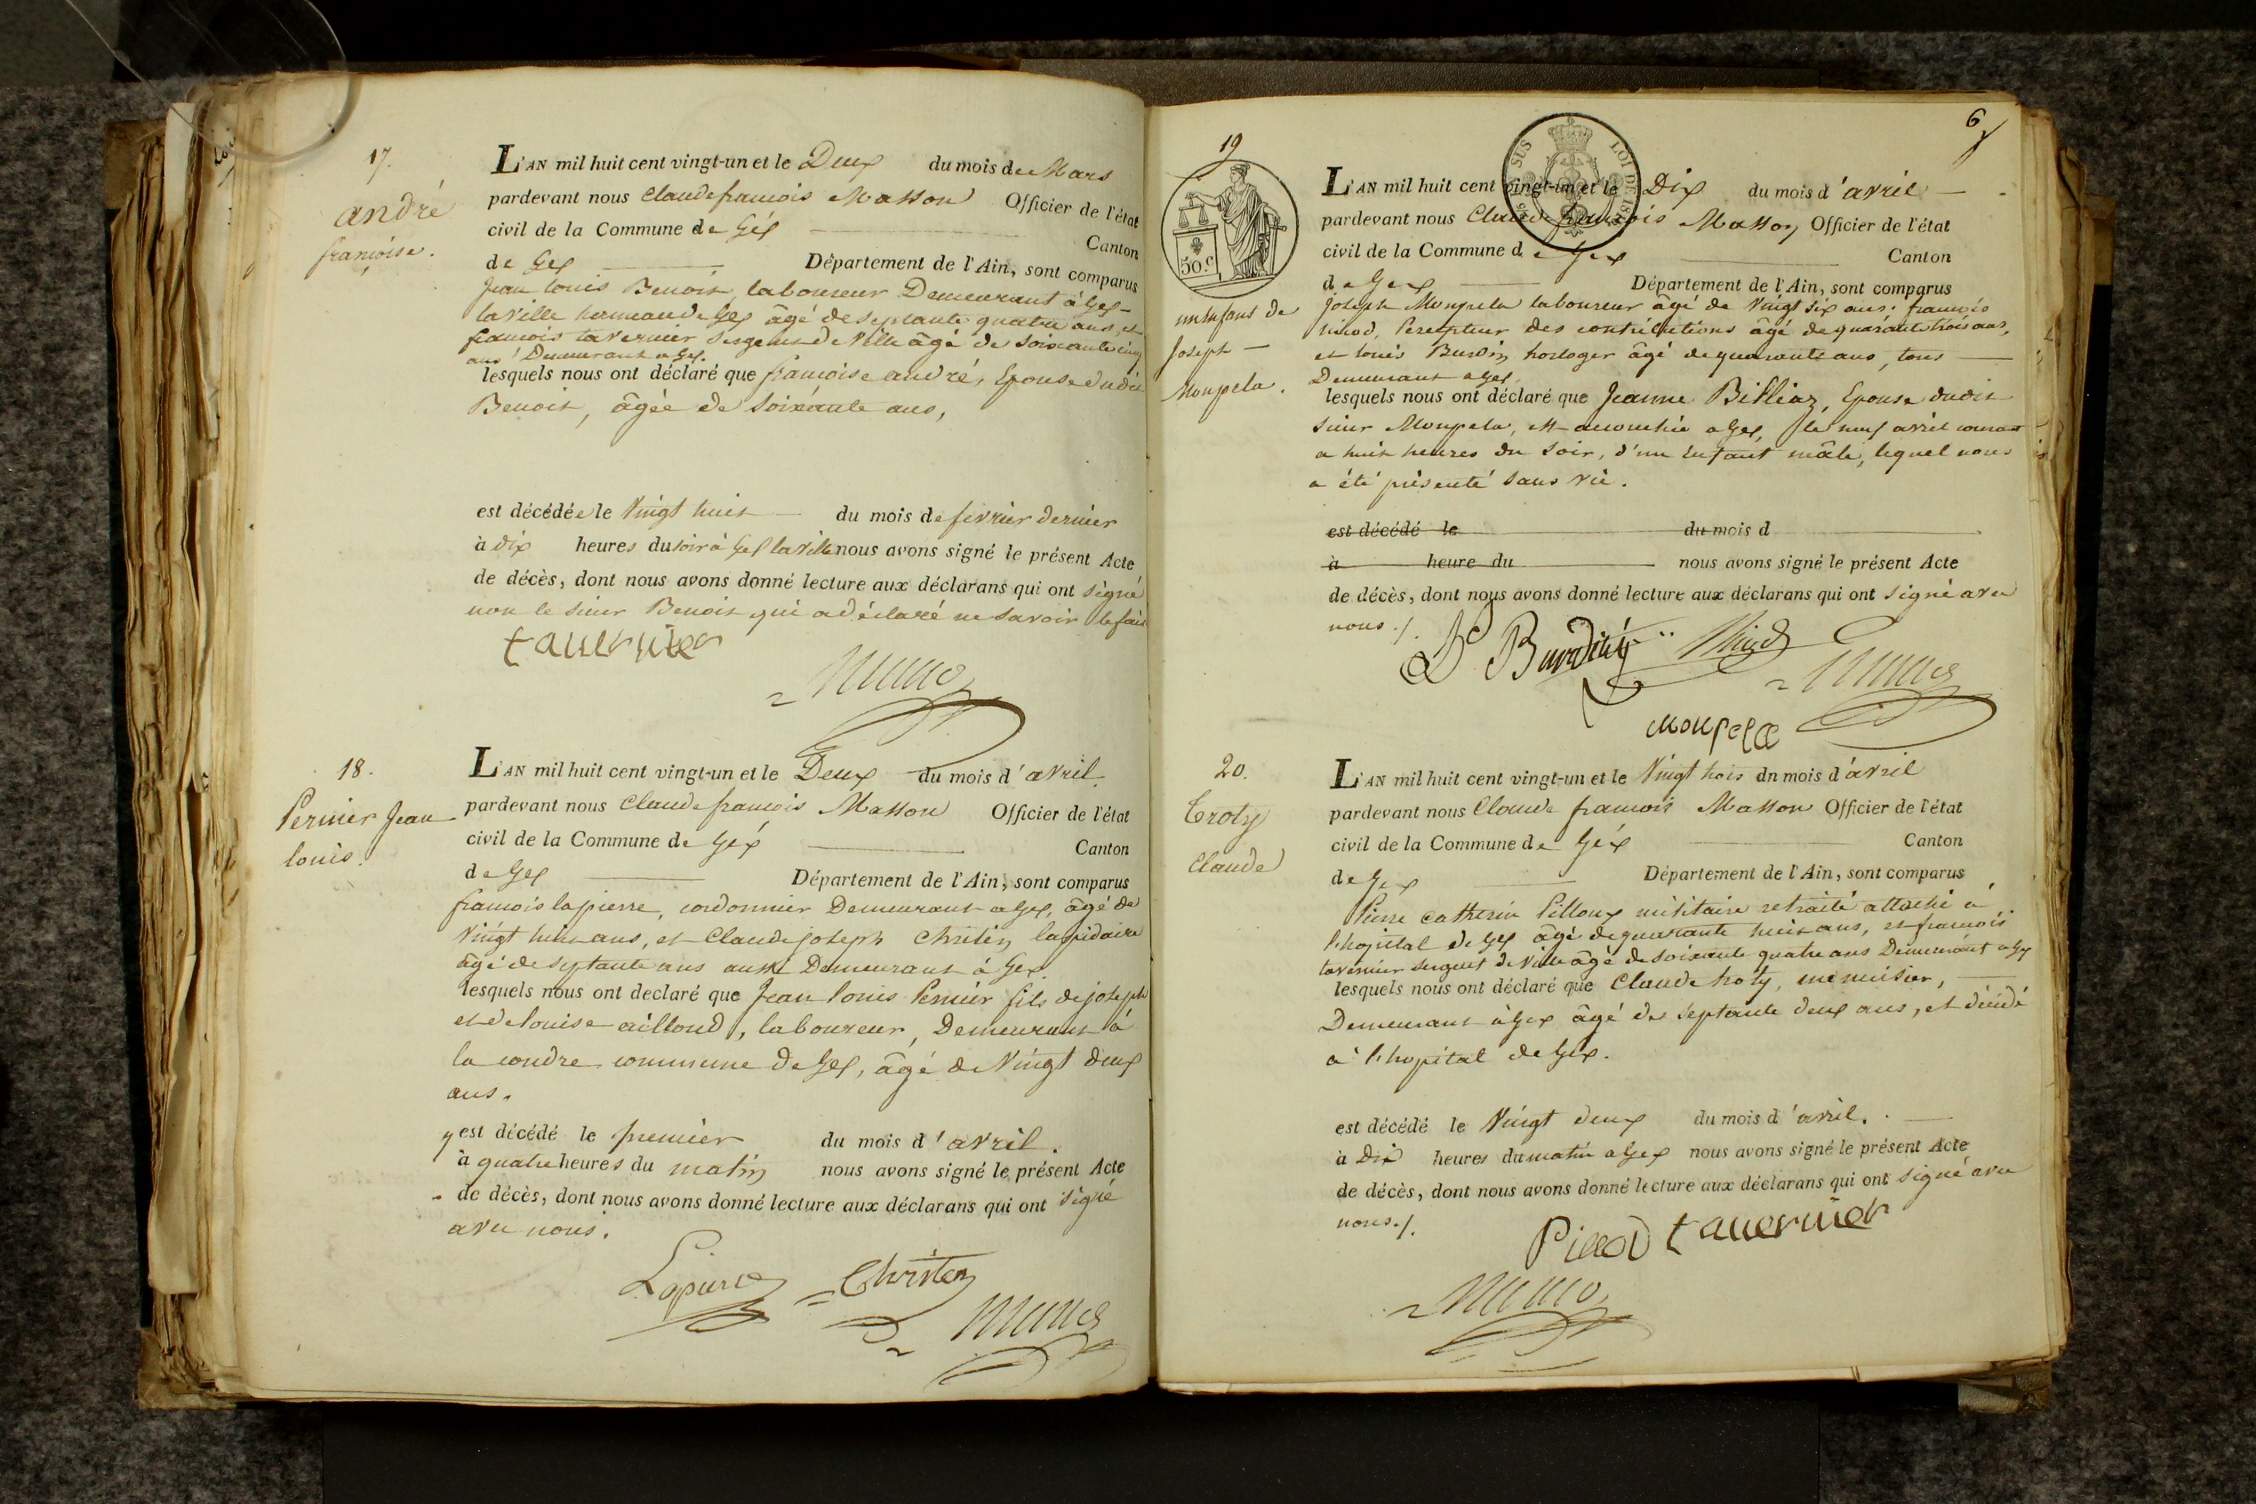 17.
andré
françoise.
L'AN mil huit cent vingt-un et le Deux du mois de Mars
pardevant nous Claude françois Masson Officier de l'état
civil de la Commune de Géx Canton
de Gex Département de l'Ain, sont comparus
Jean Louis Benoit, laboureur Demeurant à Gex-
laVille âgé de septante quatre ans, et
françois tavernier sergent de Ville âgé de soixante cinq
ans Demeurant a Gex.
lesquels nous ont déclaré que françoise andré, Epouse dudit
Benoit, âgée de soixante ans,
est décédée le Vingt huit du mois de fevrier dernier
à dix heures du soir à Gex laville nous avons signé le présent Acte
de décès, dont nous avons donné lecture aux déclarans qui ont signé
non le sieur Benoit qui a déclaré ne savoir le faire
tavernier
18.
Pernier Jean
louis.
L'AN mil huit cent vingt-un et le Deux du mois d'avril.
pardevant nous Claude françois Masson Officier de l'état
civil de la Commune de Géx Canton
de Gex Département de l'Ain, sont comparus
françois lapierre, cordonnier Demeurant a Gex, âgé de
Vingt huit ans, et Claude joseph Christin lapidaire
âgé de septante ans aussi Demeurant à Gex.
lesquels nous ont declaré que Jean louis Pernier fils de joseph
et de louise ailloud, laboureur, Demeurant à
la coudre commune de Gex, âgé de Vingt deux
ans.
y est décédé le premier du mois d'avril.
à quatre heures du matin nous avons signé le présent Acte
de décès, dont nous avons donné lecture aux déclarans qui ont signé
avec nous.
Lapierre Christin
6
19
SUS LOI DE 18
50.c
un enfant de
Joseph
Monpela.
L'AN mil huit cent vingt-un et le Dix du mois d'avril
pardevant nous Claude françois Masson Officier de l'état
civil de la Commune de Gex Canton
de Gex Département de l'Ain, sont comparus
joseph Monpela laboureur âgé de Vingt six ans. françois
nicod, Percepteur des contributions âgé de quarante trois ans,
et louis Burdin horloger âgé de quarante ans, tous
Demeurant a Gex.
lesquels nous ont déclaré que Jeanne Billiaz, Epouse dudit
sieur Monpela, est accouchée a Gex, le neuf avril courant
a huit heures du soir, d'un Enfant mâle, lequel nous
a été présenté sans vie.
est décédé le du mois d
à heure du nous avons signé le présent Acte
de décès, dont nous avons donné lecture aux déclarans qui ont signé avec
nous./.
monpela
20.
Troty
Claude
L'AN mil huit cent vingt-un et le Vingt trois du mois d'avril
pardevant nous Claude françois Masson Officier de l'état
civil de la Commune de Géx Canton
de Gex Département de l'Ain, sont comparus
Pierre Catherin Pilloux militaire retraité attaché à
l'hopital de Gex âgé de quarante huit ans, et françois
tavernier sergent de Ville âgé de soixante quatre ans Demeurant a Gex
lesquels nous ont déclaré que Claude troty, menuisier,
Demeurant à Gex âgé de septante deux ans, et décédé
à l'hopital de Gex.
est décédé le Vingt deux du mois d'avril.
à Dix heures du matin a Gex nous avons signé le présent Acte
de décès, dont nous avons donné lecture aux déclarans qui ont signé avec
nous./.
tavernier